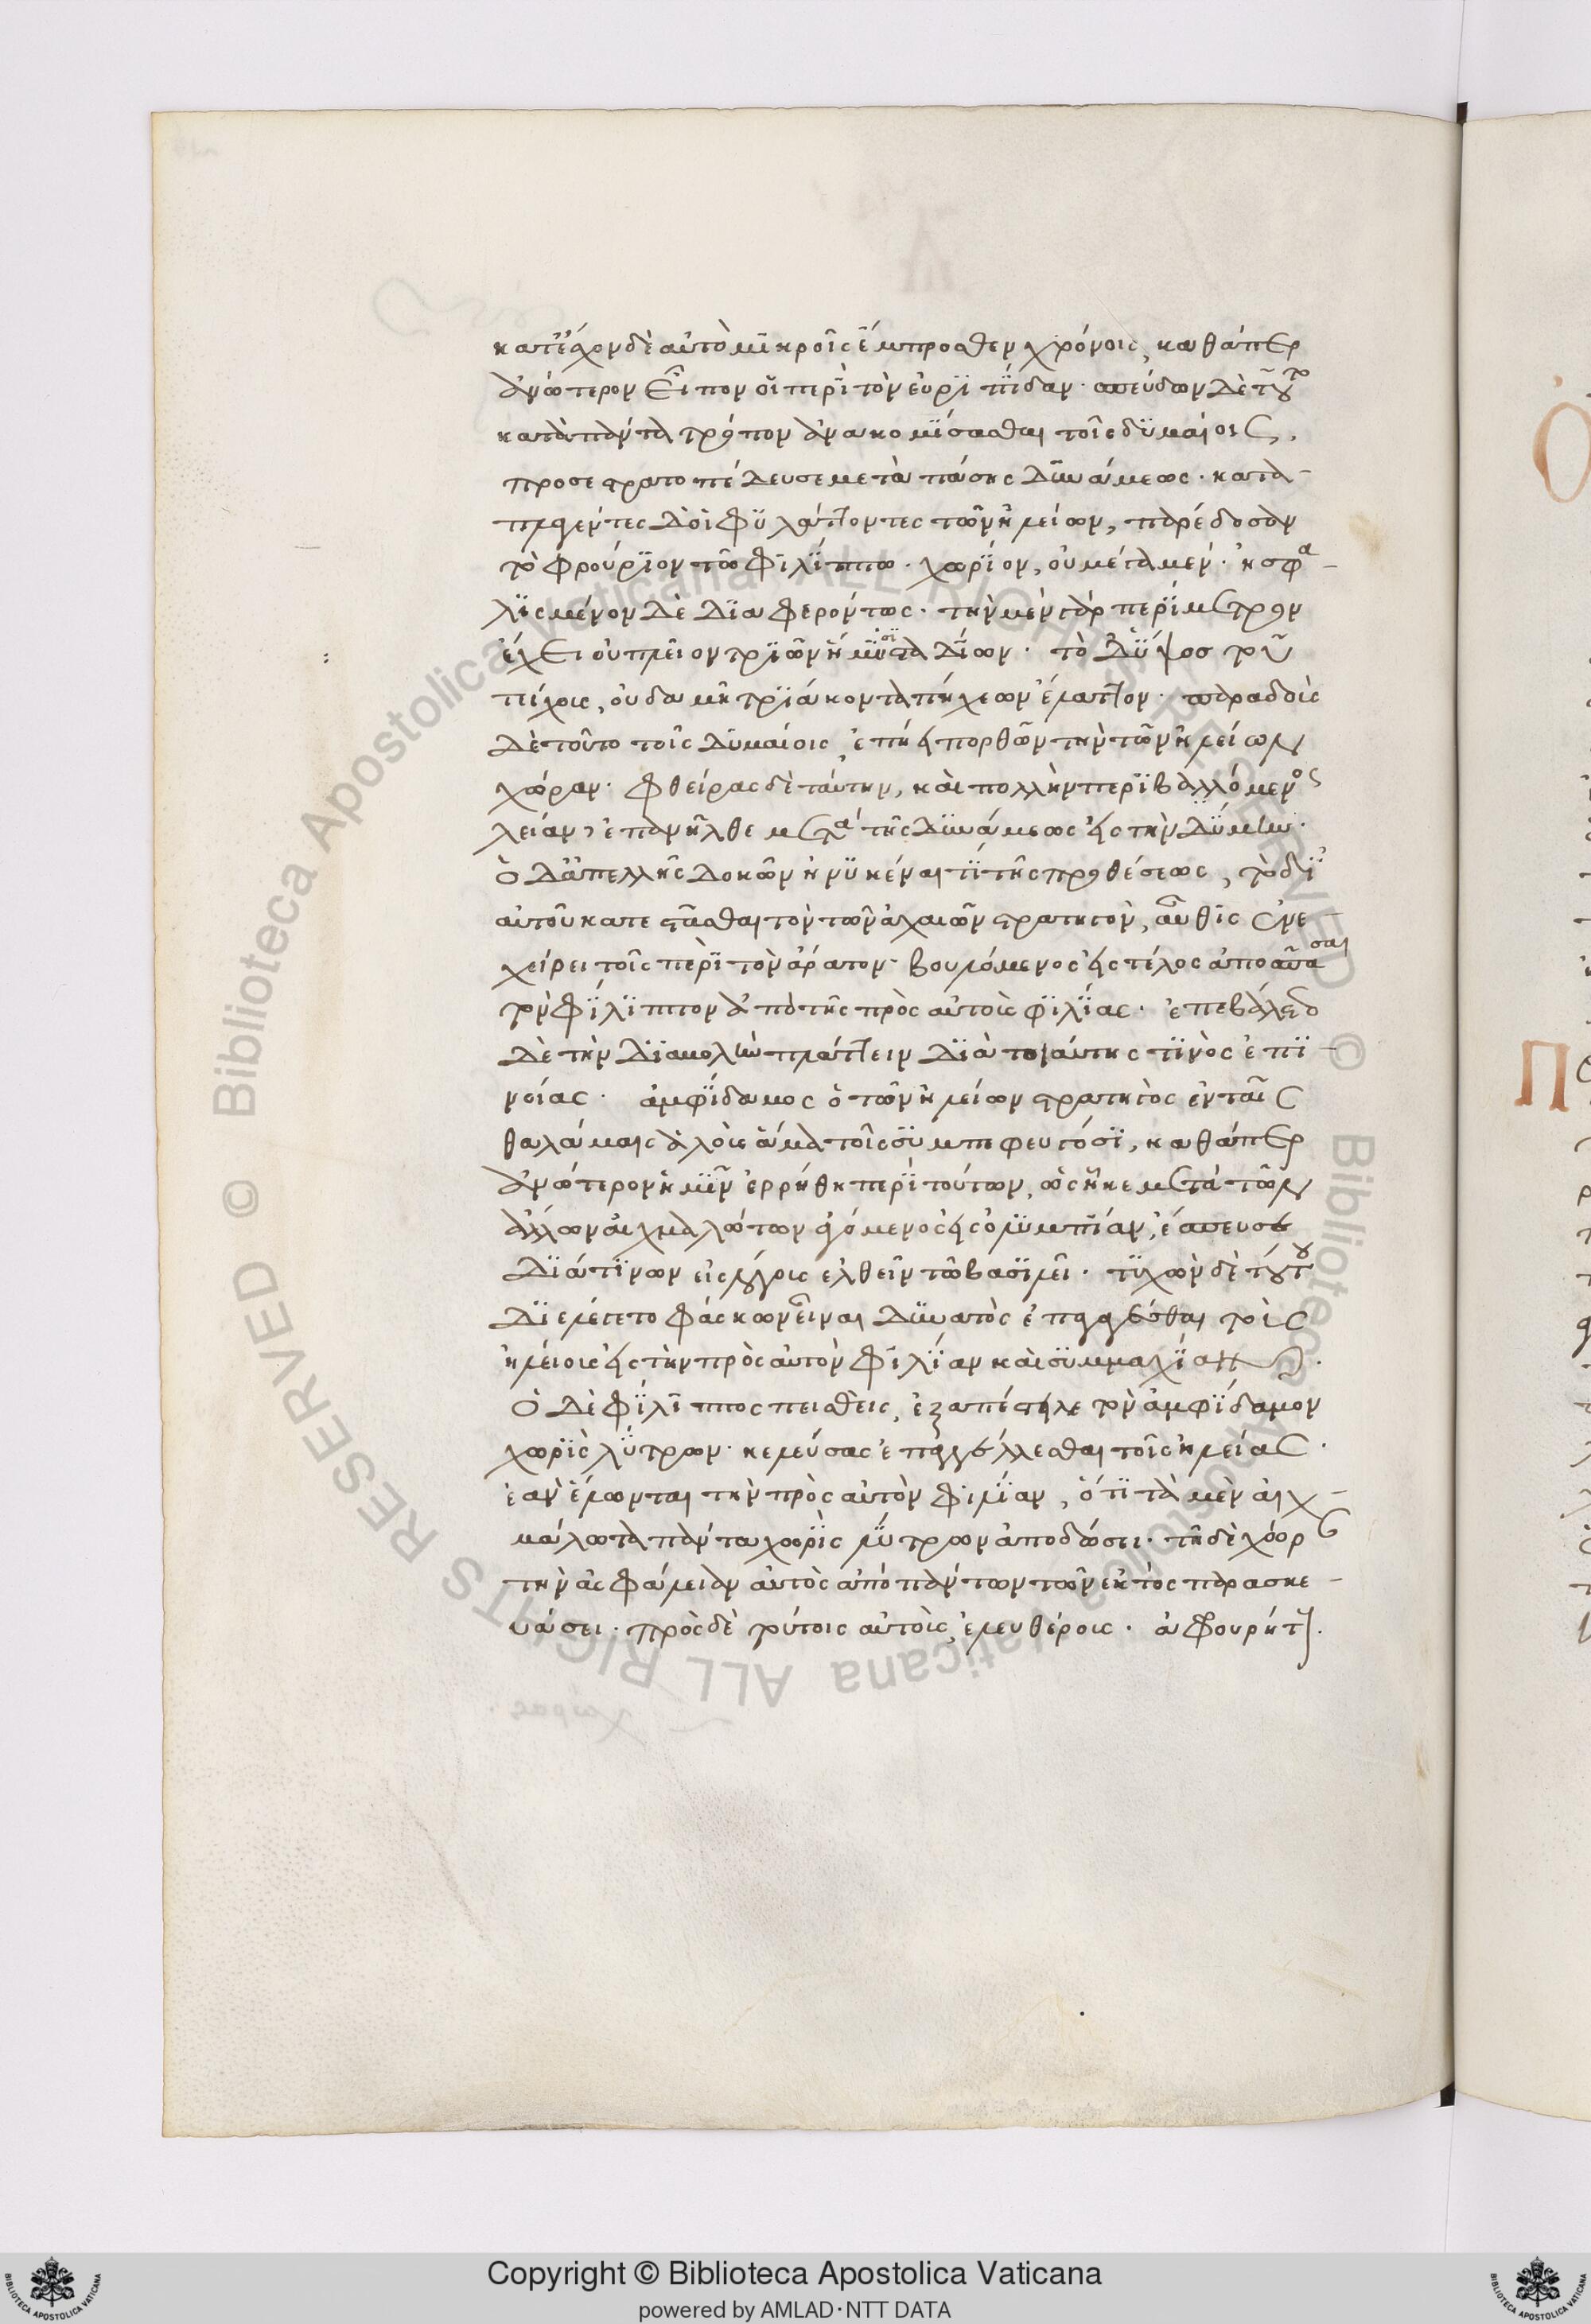 κατέσχον δὲ αὐτὸ μικροῖς ἔμπροσθεν χρόνοις, καθάπερ
ἀνώτερον εἶπον οἱ περὶ τὸν εὐριπίδαν· σπεύδων δὲ τοῦτο
κατὰ πάντα τρόπον ἀνακομίσασθαι τοῖς δυμαίοις,
προσεστρατοπέδευσε μετὰ πάσης δυνάμεως· κατα-
πλαγέντες δ' οἱ φυλάττοντες τῶν ἠλείων, παρέδοσαν
τὸ φρούριον τῶ φιλίππω· χωρίον, οὐ μέγα μέν· ἠσφα-
λισμένον δὲ διαφερόντως· τὴν μὲν γὰρ περίμετρον
ἔχει οὐ πλεῖον τριῶν ἡμισταδίων· τὸ δ' ὕψος τοῦ
τείχους, οὐδαμῆ τριάκοντα πήχεων ἔλαττον· παραδοὺς
δὲ τοῦτο τοῖς δυμαίοις, ἐπήει πορθῶν τὴν τῶν ἠλείων
χώραν· φθείρας δὲ ταύτην, καὶ πολλὴν περιβαλλόμενος
λείαν, ἐπανῆλθε μετὰ τῆς δυνάμεως εἰς τὴν δύμην·
Ὁ δ' ἀπελλῆς δοκῶν ἠνυκέναι τι τῆς προθέσεως, τὸ δι'
αὐτοῦ κατεστᾶσθαι τὸν τῶν ἀχαιῶν στρατηγὸν, αὖθις ἐνε-
χείρει τοῖς περὶ τὸν ἄρατον· βουλόμενος εἰς τέλος ἀποσπᾶσαι
τὸν φίλιππον ἀπὸ τῆς πρὸς αὐτοὺς φιλίας· ἐπεβάλετο
δὲ τὴν διαβολὴν πλάττειν διὰ τοιαύτης τινὸς ἐπι-
νοίας· ἀμφίδαμος ὁ τῶν ἠλείων στρατηγὸς ἐν ταῖς
θαλάμαις ἁλοὺς ἅμα τοῖς συμπεφευγόσι, καθάπερ
ἀνώτερον ἡμῖν ἐρρήθη περὶ τούτων, ὡς ἧκε μετὰ τῶν
ἄλλων αἰχμαλώτων ἀγόμενος εἰς ὀλυμπίαν, ἔσπευσε
διά τινων εἰς λόγους ἐλθεῖν τῶ βασιλεῖ· τυχὼν δὲ τούτου
διελέγετο φάσκων εἶναι δυνατὸς ἐπαγαγέσθαι τοὺς
ἠλείους εἰς τὴν πρὸς αὐτὸν φιλίαν καὶ συμμαχίαν.
Ὁ δὲ φίλιππος πεισθεὶς, ἐξαπέστειλε τὸν ἀμφίδαμον
χωρὶς λύτρων· κελεύσας ἐπαγγέλλεσθαι τοῖς ἠλείοις·
ἐὰν ἕλωνται τὴν πρὸς αὐτὸν φιλίαν, ὅτι τὰ μὲν αἰχ-
μάλωτα πάντα χωρὶς λύτρων ἀποδώσει· τῆ δὲ χώρα
τὴν ἀσφάλειαν αὐτὸς ἀπὸ πάντων τῶν ἐκτὸς παρασκε-
υάσει· πρὸς δὲ τούτοις αὐτοὺς ἐλευθέρους· ἀφρουρήτους.
Copyright © Biblioteca Apostolica Vaticana
powered by AMLAD·NTT DATA
© Biblioteca Apostolica Vaticana ALL RIGHTS RESERVED
© Biblioteca Apostolica Vaticana ALL RIGHTS RESERVED